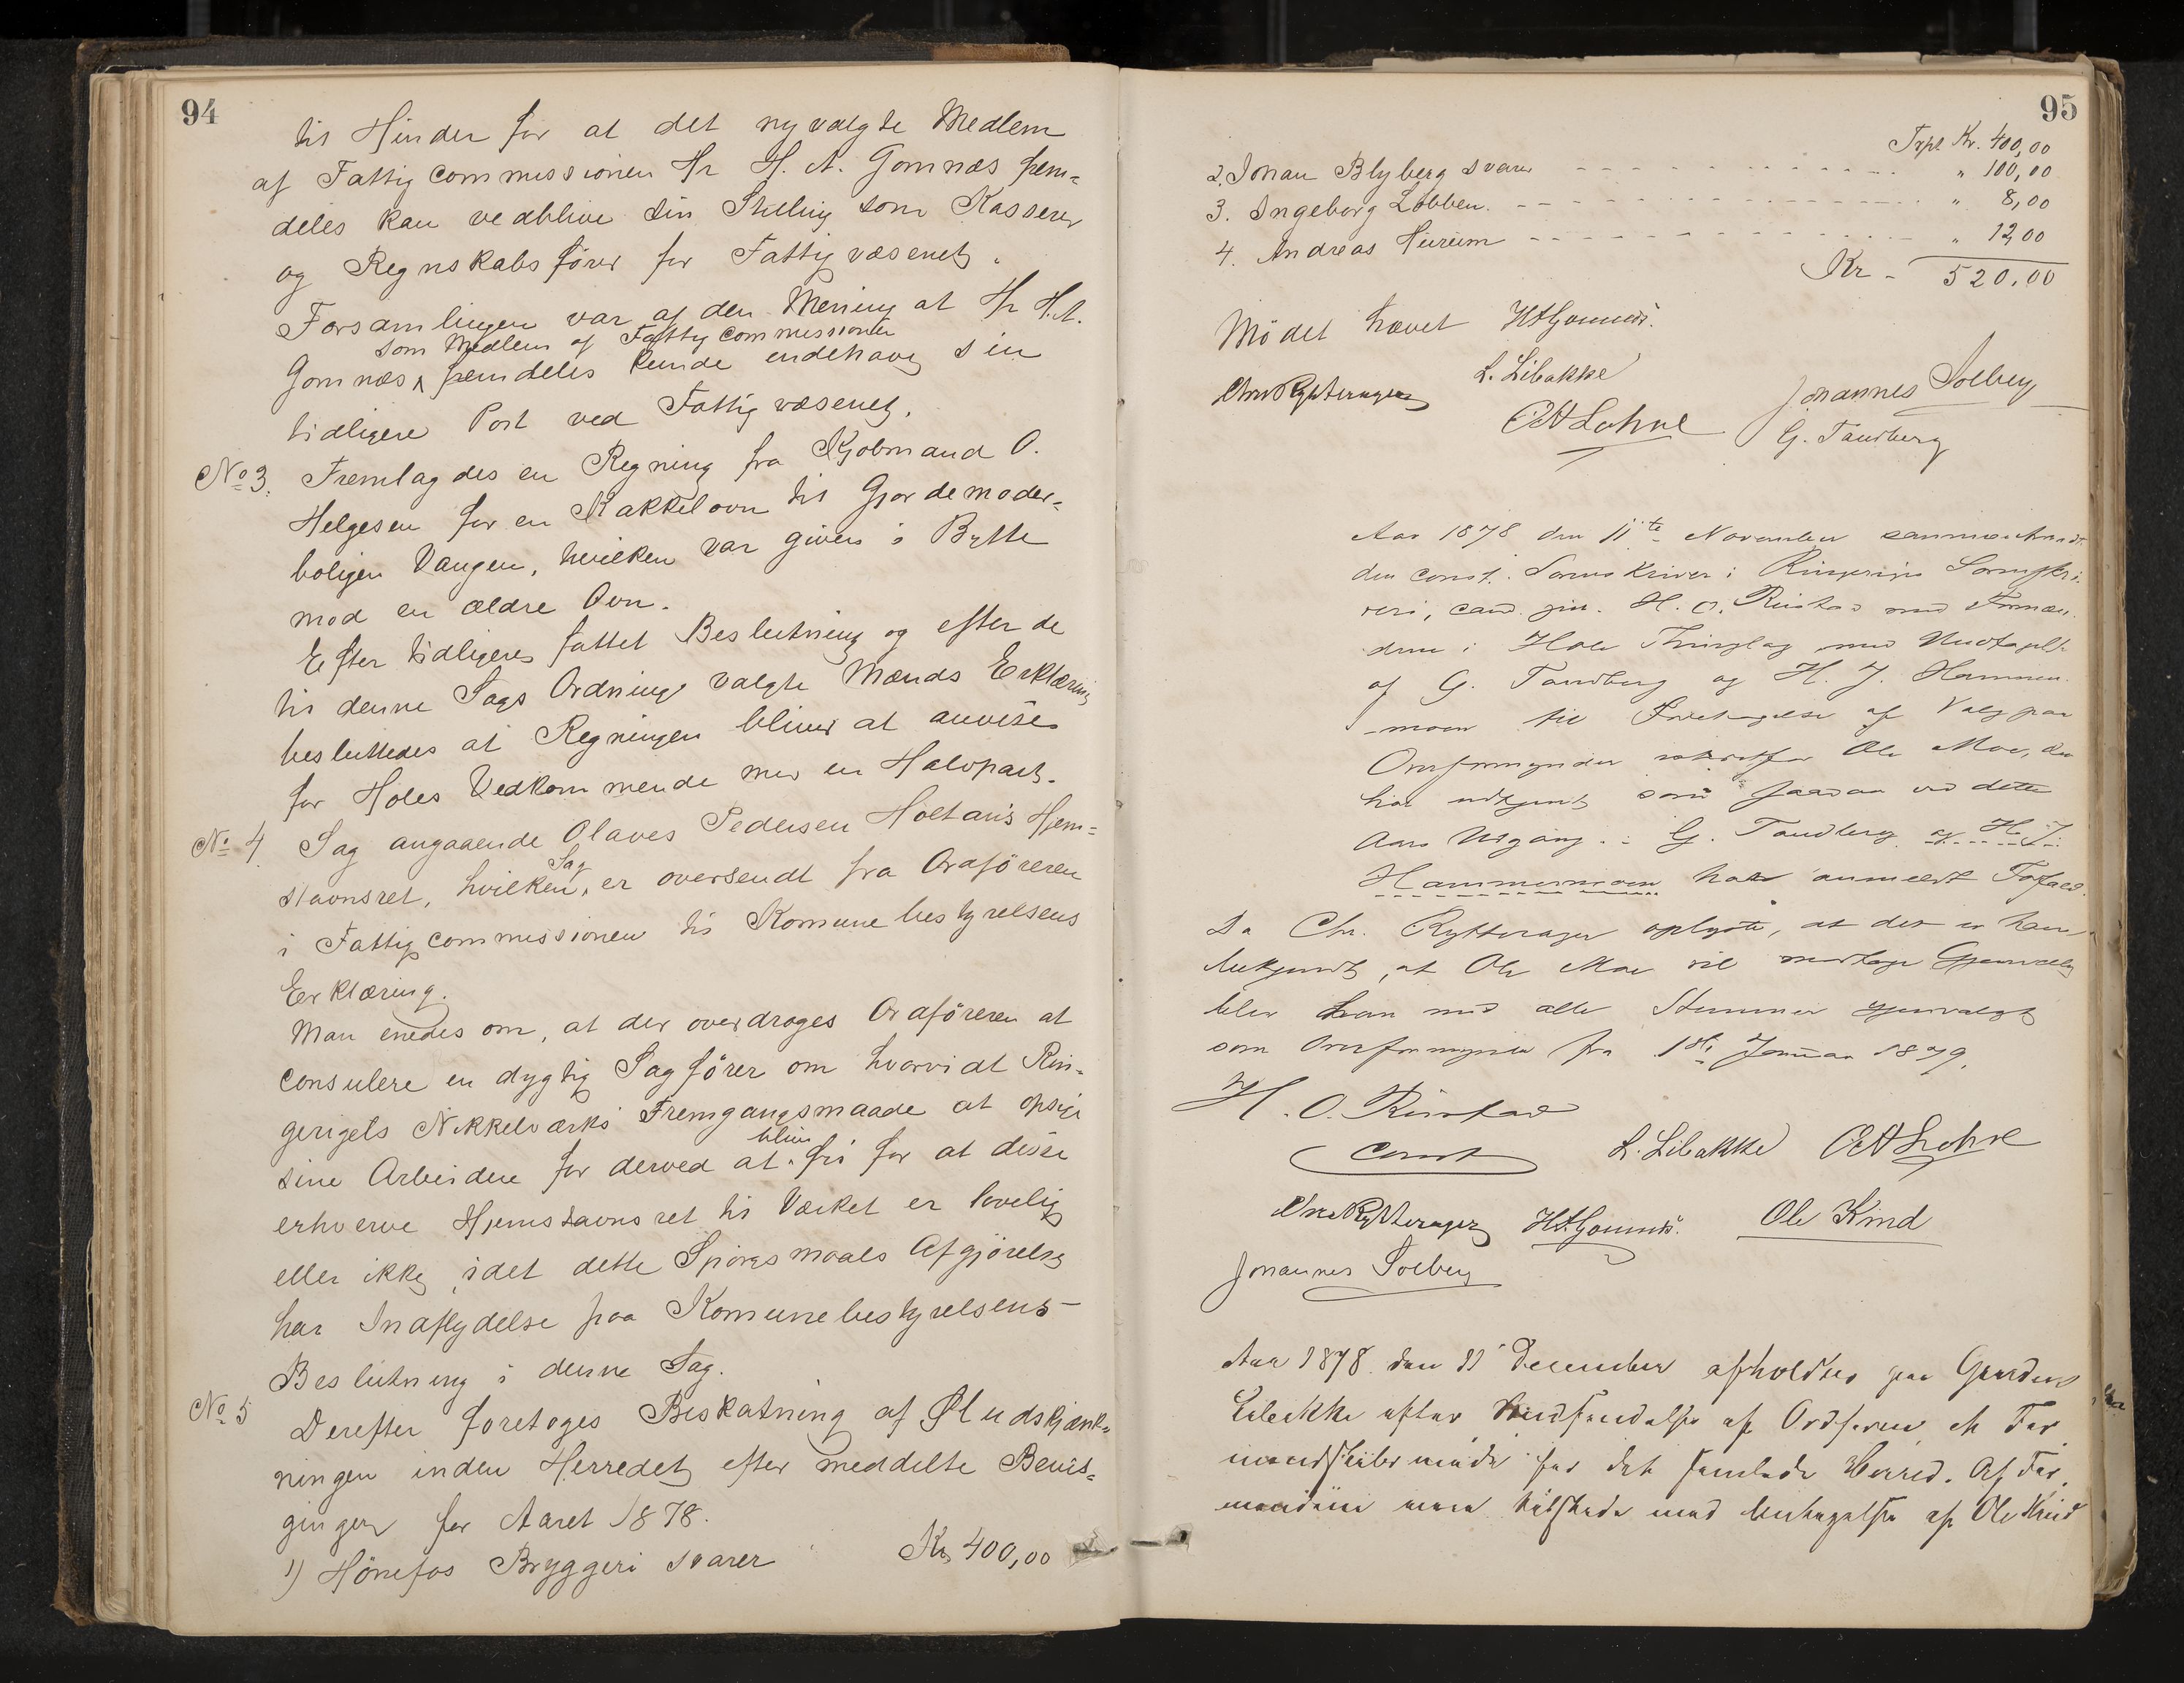 94
til Hinder for at det nyvalgte Medlem
af Fattigcommissionen Hr H. A. Gomnæs frem=
deles kan vedblive sin Stilling som Kasserer
og Regnskabsfører for Fattigvæsenet.
Forsamlingen var af den Mening at Hr H.A.
som Medlem af Fattigcommissionen
Gomnæs fremdeles kunde indehave sin
tidligere Post ved Fattigvæsenet.
No 3. Fremlagdes en Regning fra Kjøbmand O.
Helgesen for en Kakkelovn til Gjordemoder=
boligen Vangen, hvilken var given i Bytte
mod en ældre Ovn.
Efter tidligere fattet Beslutning og efter de
til denne Sags Ordning valgte Mænds Erklæring
besluttedes at Regningen bliver at anvise
for Holes Vedkommende med en Halvpart.
No 4 Sag angaaende Olaves Pedersen Holtans Hjem=
Sag
stavnsret, hvilken er oversendt fra Ordføreren
i Fattigcommissionen til Komunebestyrelsens
Erklæring.
Man enedes om, at der overdroges Ordføreren at
consulere en dygtig Sagfører om hvorvidt Rin=
gerigets Nikkelværks Fremgangsmaade at opsige
blive
sine Arbeidere for derved at fri for at disse
erhverve Hjemstavnsret til Værket er lovelig
eller ikke, idet dette Spörgsmaals Afgjörelse
har Indflydelse paa Komunebestyrelsens
Beslutning i denne Sag.
No 5 Derefter foretoges Beskatning af Øludskjænk=
ningen inden Herredet efter meddelte Bevil=
ginger for Aaret 1878.
1) Hönefos Bryggeri svarer Kr 400,00
95
Trpt Kr. 400,00
2. Johan Blyberg svarer " 100,00
3. Ingeborg Löbben " 8,00
4. Andreas Hurum " 12,00
Kr - 520,00
Mödet hævet HAGomnæs.
L. Libakke
Chr Rytterager Johannes Solberg
OALohne G. Tandberg
Aar 1878 den 11te November sammentraadte
den const. Sorenskriver i Ringerigs Sorenskri-
veri, cand. jur. H. O. Rustad med Formæn-
dene i Hole Thinglag med Undtagelse
af G. Tandberg og H. J. Hammer-
moen til Foretagelse af Valg paa
Overformynder istedetfor Ole Moe, der
har udtjent som saadan ved dette
Aars Udgang. G. Tandberg og H. J.
Hammermoen har anmeldt Forfald.
Da Chr. Rytterager oplyste, at det er ham
bekjendt, at Ole Moe vil modtage Gjenvalg
blev han med alle Stemmer gjenvalgt
som Overformynder fra 1ste Januar 1879.
H. O. Rustad
const
L. Libakke OALohne
Chr Rytterager HAGomnæs. Ole Kind
Johannes Solberg
Aar 1878 den 11 December afholdtes paa Gaarden
Libakke efter af Ordføreren et For
mandskabsmøde for det samlede Herred. Af For
mændene vare tilstede med Undtagelse af Ole Kind